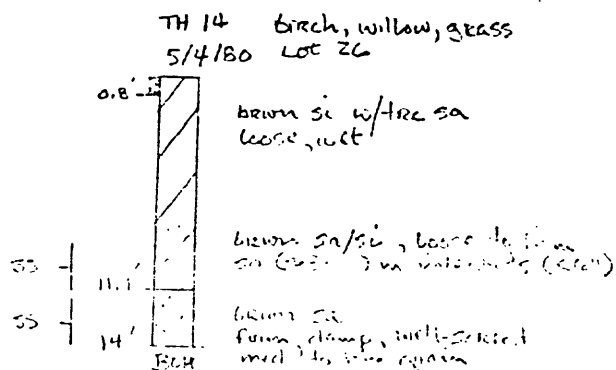 TH 14 birch, willow, grass
5/4/80 Lot 26
0.8'
brwn si w/trc sa
loose, wet
brwn sa/si, loose to firm
SS
sa
11.1'
SS
brwn sa
firm, damp, well-sorted
14'
med to fine grain
BOH